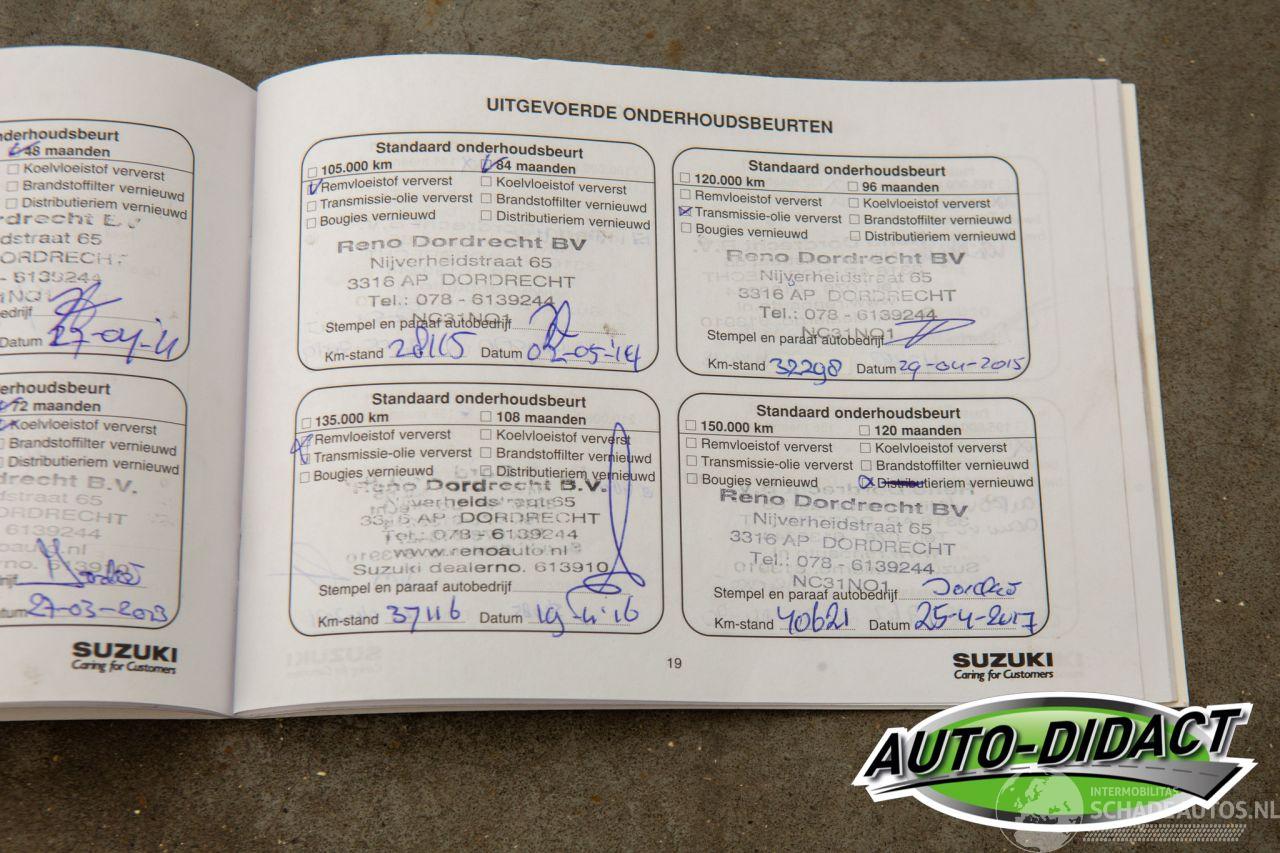 nderhoudsbeurt
48 maanden
Koelvloeistof ververst
Brandstoffilter vernieuwd
Distributieriem vernieuwd
drecht B.V.
dstraat 65
ORDRECHT
- 6139244
31NO1
edrijf
Datum 27-04-11
erhoudsbeurt
72 maanden
Koelvloeistof ververst
Brandstoffilter vernieuwd
Distributieriem vernieuwd
drecht B.V.
dstraat 65
ORDRECHT
- 6139244
noauto.nl
rno. 613910
rijf
tum 27-03-2013
SUZUKI
Caring for Customers
UITGEVOERDE ONDERHOUDSBEURTEN
Standaard onderhoudsbeurt
105.000 km 84 maanden
Remvloeistof ververst Koelvloeistof ververst
Transmissie-olie ververst Brandstoffilter vernieuwd
Bougies vernieuwd Distributieriem vernieuwd
Reno Dordrecht BV
Nijverheidstraat 65
3316 AP DORDRECHT
Tel.: 078 - 6139244
NC31NO1
Stempel en paraaf autobedrijf
Km-stand 28115 Datum 02-05-'14
Standaard onderhoudsbeurt
120.000 km 96 maanden
Remvloeistof ververst Koelvloeistof ververst
Transmissie-olie ververst Brandstoffilter vernieuwd
Bougies vernieuwd Distributieriem vernieuwd
Reno Dordrecht BV
Nijverheidstraat 65
3316 AP DORDRECHT
Tel.: 078 - 6139244
NC31NO1
Stempel en paraaf autobedrijf
Km-stand 32298 Datum 29-04-2015
Standaard onderhoudsbeurt
135.000 km 108 maanden
Remvloeistof ververst Koelvloeistof ververst
Transmissie-olie ververst Brandstoffilter vernieuwd
Bougies vernieuwd Distributieriem vernieuwd
Reno Dordrecht B.V.
Nijverheidstraat 65
3316 AP DORDRECHT
Tel.: 078 - 6139244
www.renoauto.nl
Suzuki dealerno. 613910
Stempel en paraaf autobedrijf
Km-stand 37116 Datum 19-4-'16
Standaard onderhoudsbeurt
150.000 km 120 maanden
Remvloeistof ververst Koelvloeistof ververst
Transmissie-olie ververst Brandstoffilter vernieuwd
Bougies vernieuwd Distributieriem vernieuwd
Reno Dordrecht BV
Nijverheidstraat 65
3316 AP DORDRECHT
Tel.: 078 - 6139244
NC31NO1
Stempel en paraaf autobedrijf
Km-stand 40621 Datum 25-4-2017
19
SUZUKI
Caring for Customers
AUTO-DIDACT
INTERMOBILITAS
SCHADEAUTOS.NL